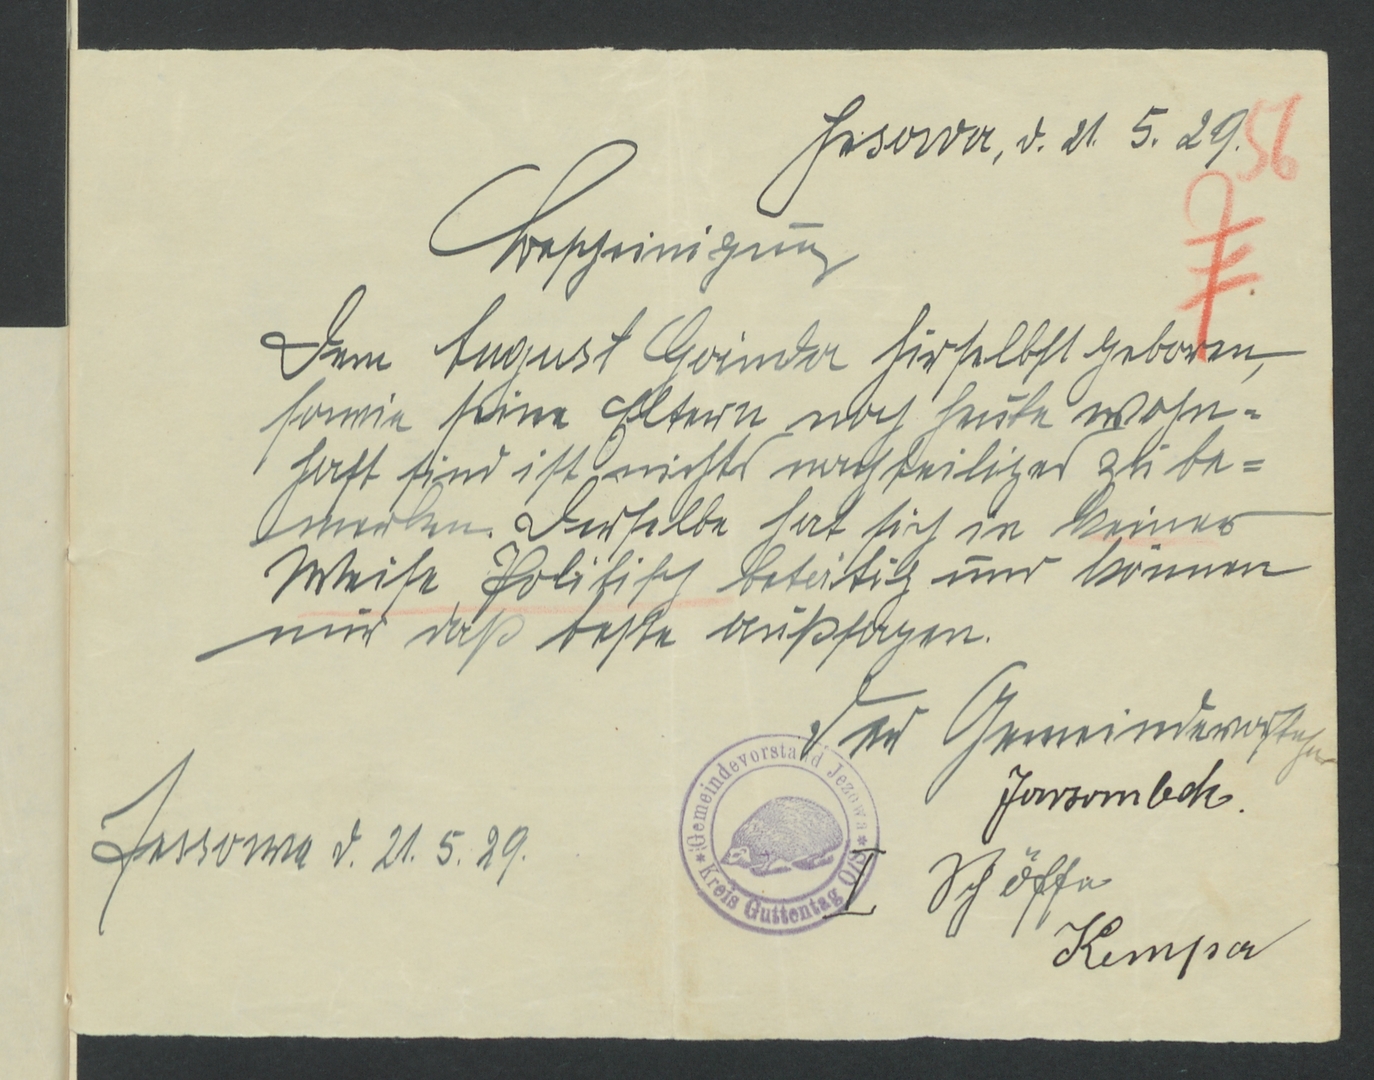 Jesowa, d. 21. 5. 29.
56
Bescheinigung
Dem August Gainda hirselbst geboren,
sowie seine Eltern noch heute wohn=
haft sind ist nichts nachteiliges zu be=
merken. Derselbe hat sich in keiner
Weise Politisch beteitig und können
nur daß beste außsagen.
Der Gemeindevorsteher
Jarzombek.
Gemeindevorstand Jezowa
Kreis Guttentag O/S
I Schöffe
Kempa
Jessowa d. 21. 5. 29.